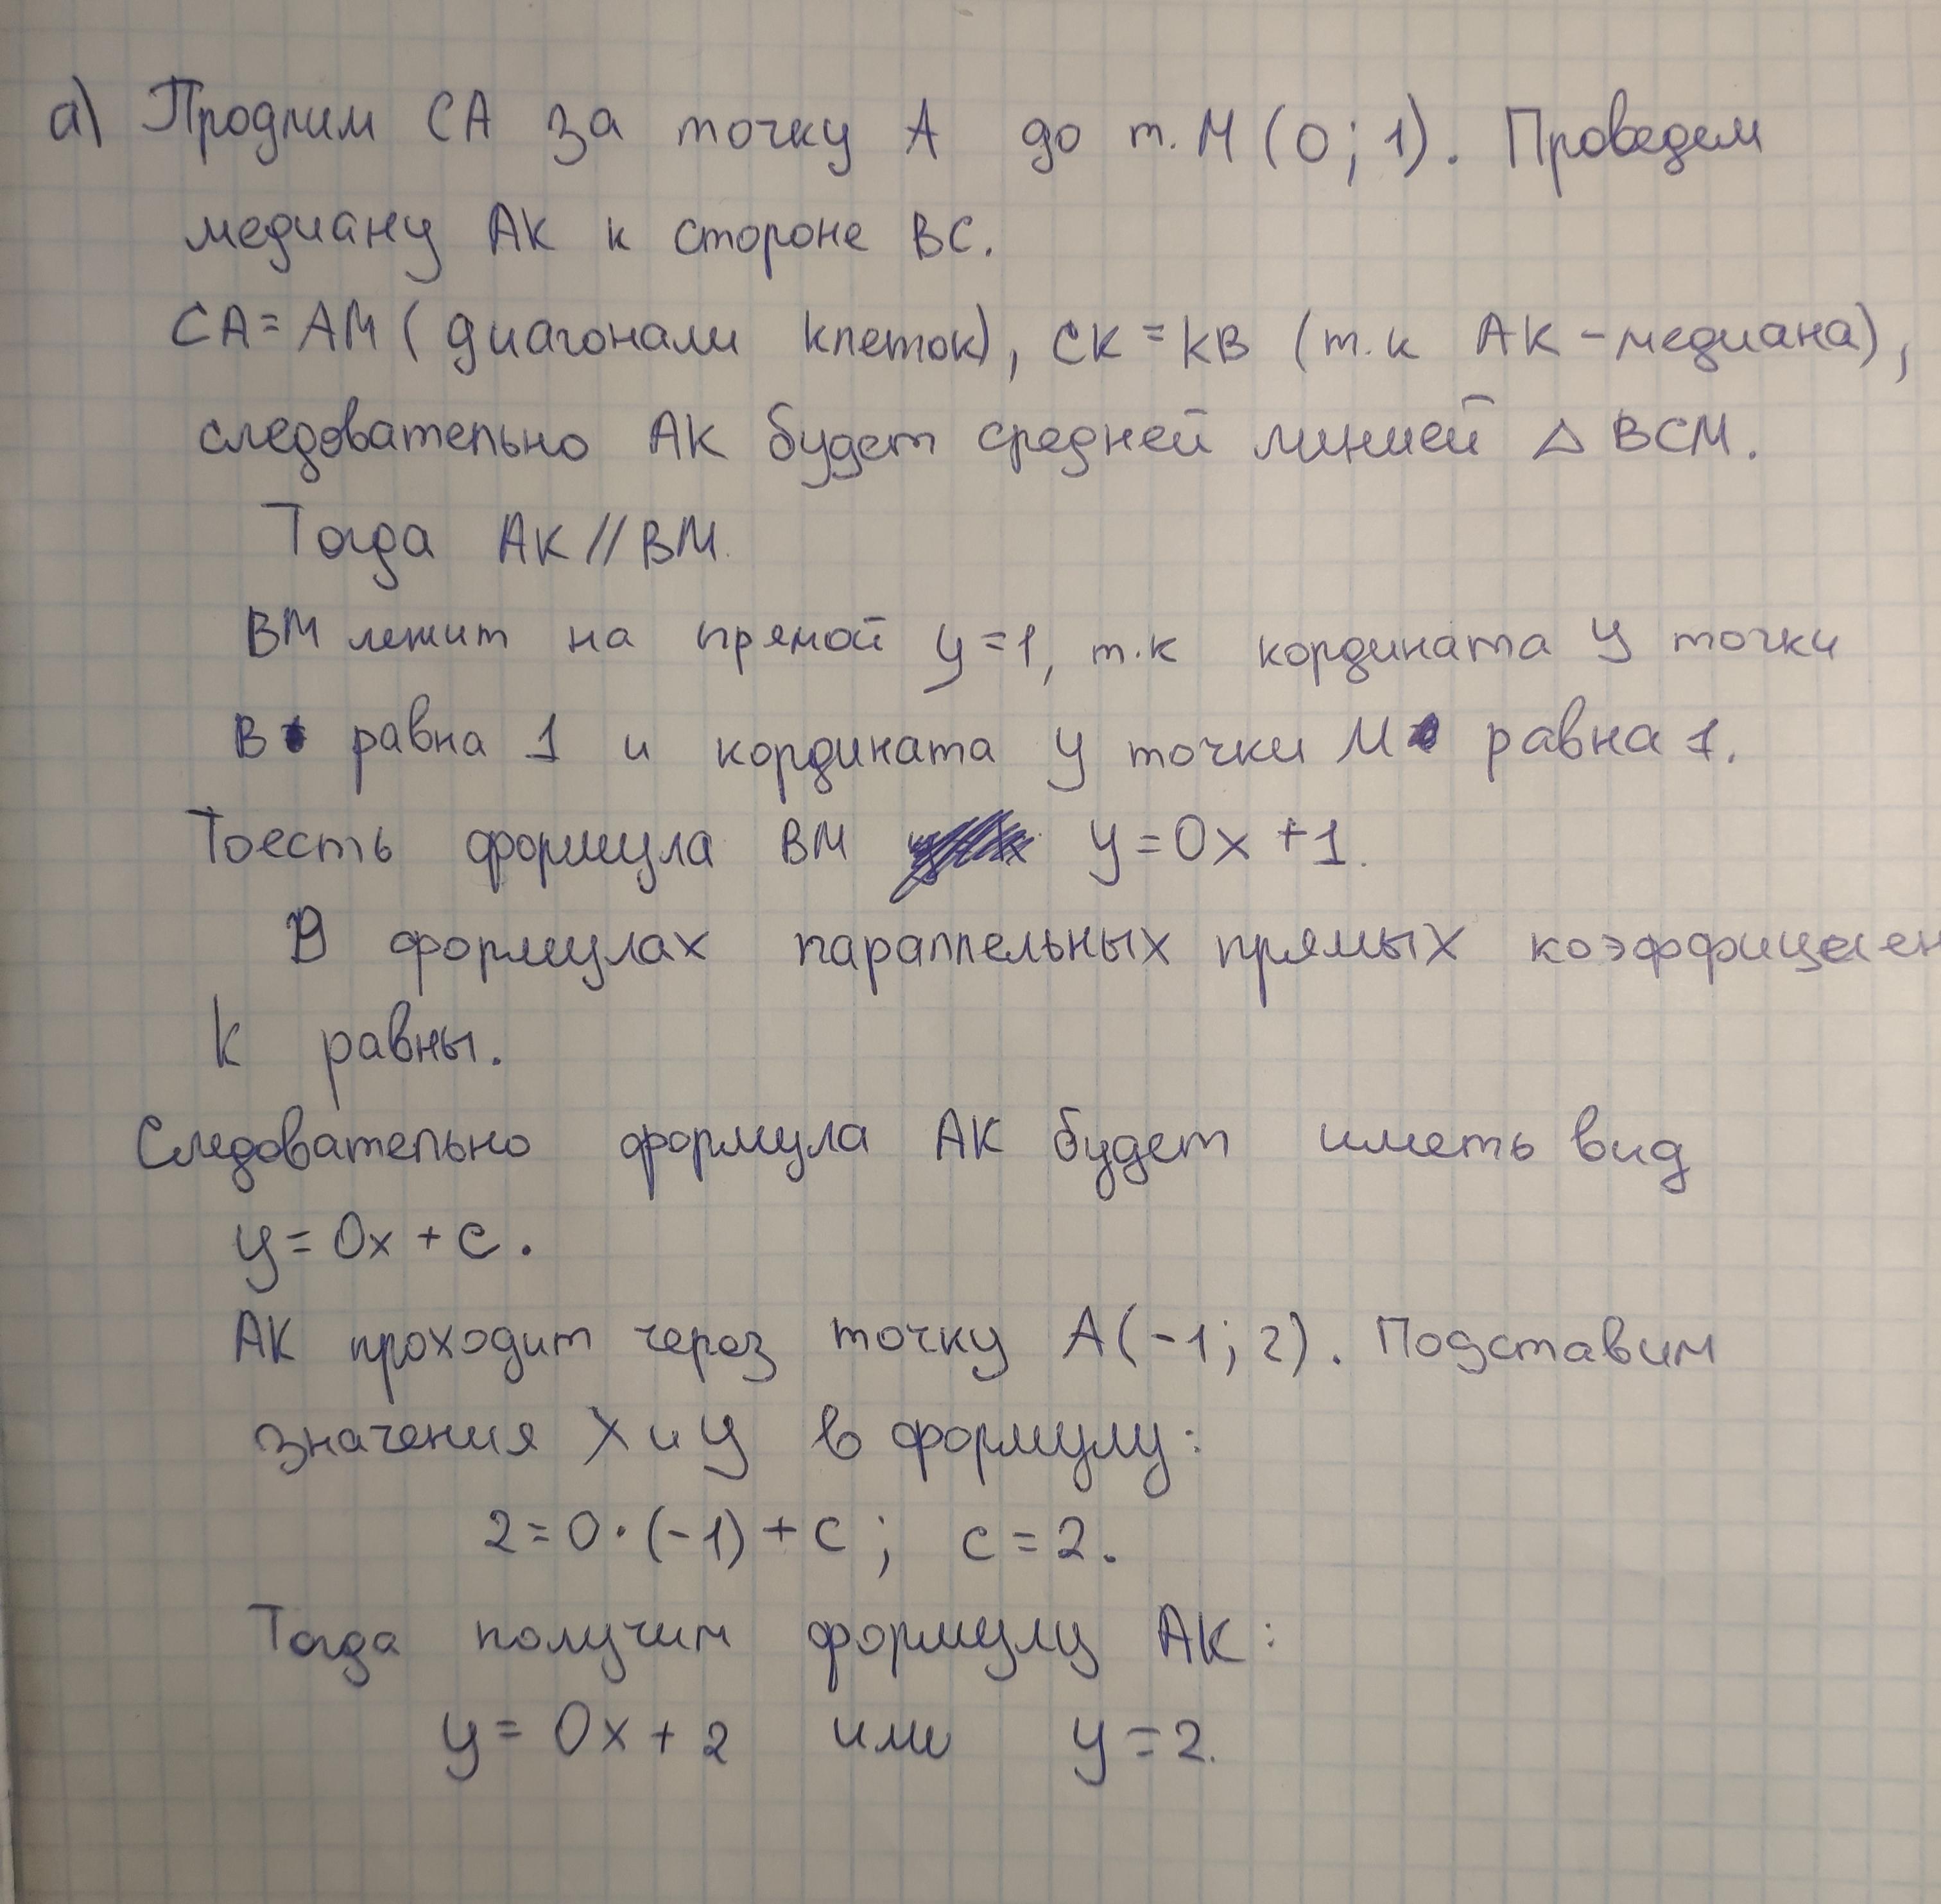 а) Продлим СА за точку А до т. М (0; 1). Проведем
медиану АК к стороне ВС.
СА = АМ ( диагонали клеток), СК = КВ (т.к АК - медиана),
следовательно АК будет средней линией △ ВСМ.
Тогда АК // ВМ.
ВМ лежит на прямой y = 1, т.к кордината y точки
В равна 1 и кордината y точки М равна 1.
Тоесть формула ВМ y = 0x + 1.
В формулах параллельных прямых коэффициен
k равны.
Следовательно формула АК будет иметь вид
y = 0x + c.
АК проходит через точку А (-1; 2). Подставим
значения X и y в формулу:
2 = 0 · (-1) + c ; c = 2.
Тогда получим формулу АК:
y = 0x + 2 или y = 2.